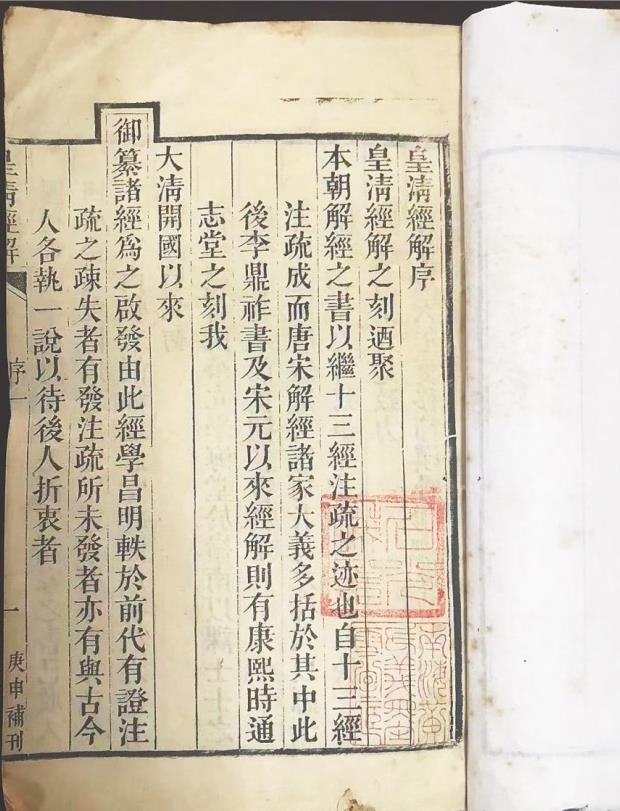 皇清經解序
皇清經解之刻迺聚
本朝解經之書以繼十三經注疏之迹也自十三經
注疏成而唐宋解經諸家大義多括於其中此
後李鼎祚書及宋元以來經解則有康熙時通
志堂之刻我
大清開國以來
御纂諸經爲之啟發由此經學昌明軼於前代有證注
疏之疎失者有發注疏所未發者亦有與古今
人各執一說以待後人折衷者
皇清經解
序
一
一
庚申補刊